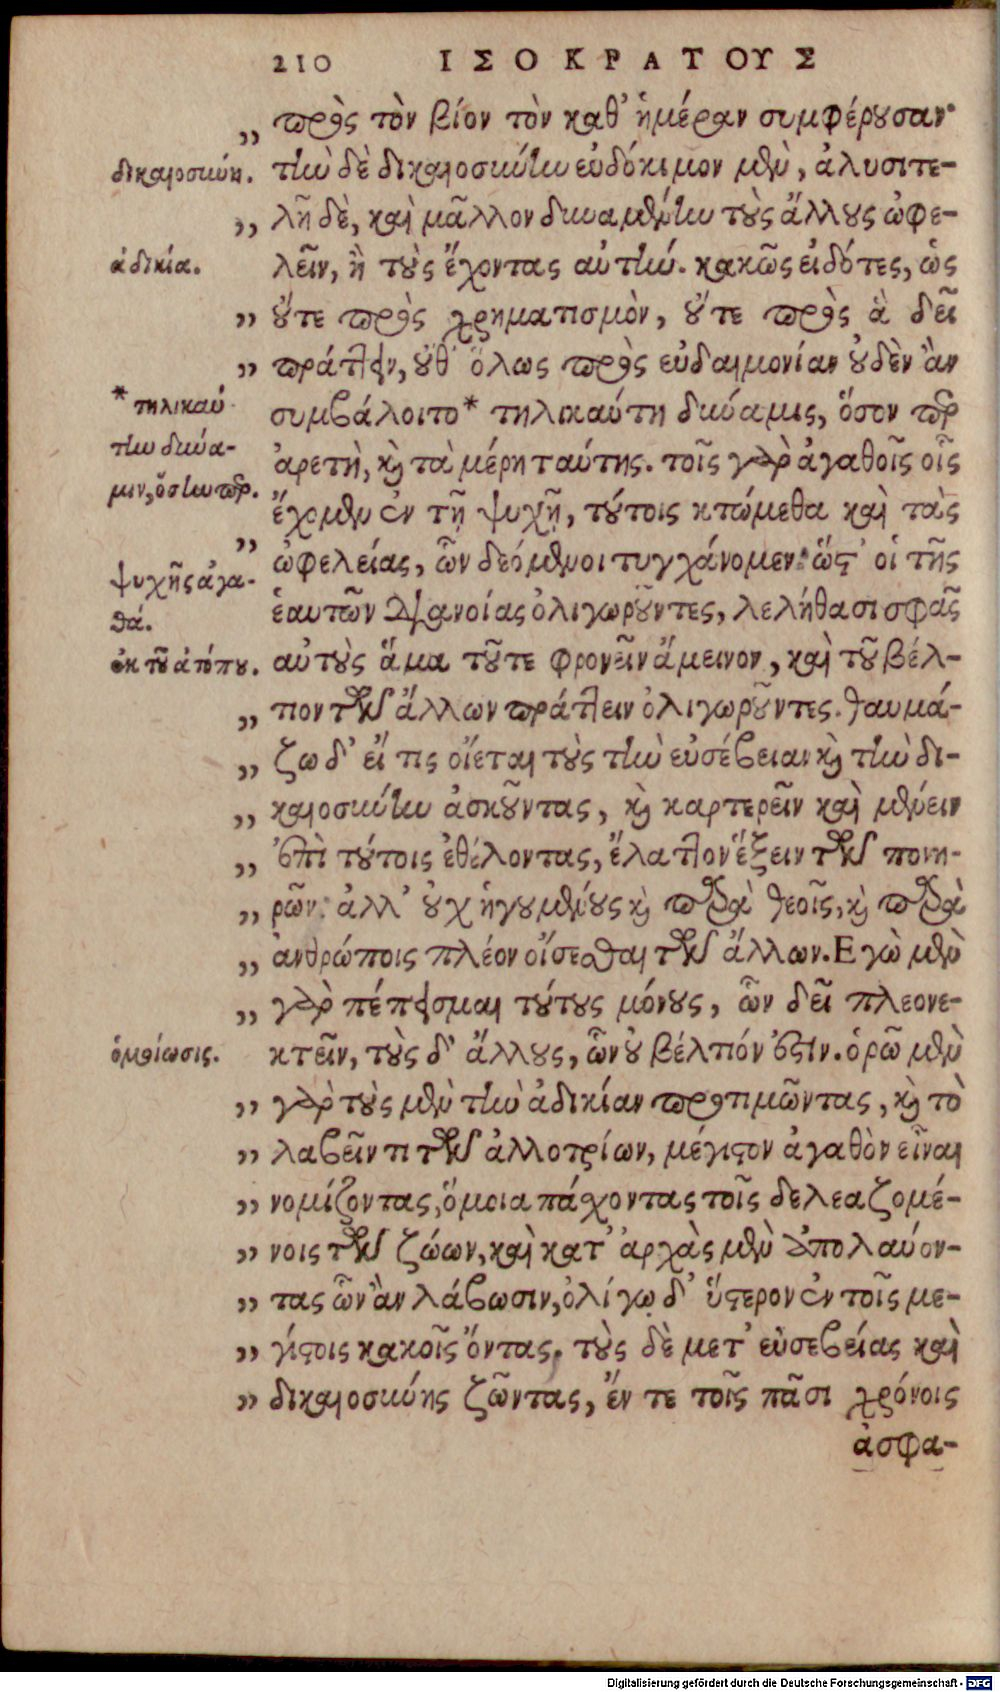 210 ΙΣΟΚΡΑΤΟΥΣ
πρὸς τὸν βίον τὸν καθ' ἡμέραν συμφέρουσαν·
„
δικαιοσύνη. τὴν δὲ δικαιοσύνην εὐδόκιμον μὲν, ἀλυσιτε-
„ λῆ δὲ, καὶ μᾶλλον δυναμένην τοὺς ἄλλους ὠφε-
ἀδικία. λεῖν, ἢ τοὺς ἔχοντας αὐτήν. κακῶς εἰδότες, ὡς
„ οὔτε πρὸς χρηματισμὸν, οὔτε πρὸς ἃ δεῖ
„ πράττειν, οὔθ' ὅλως πρὸς εὐδαιμονίαν οὐδὲν ἂν
* τηλικαύ-
συμβάλοιτο* τηλικαύτη δύναμις, ὅσον περ
την δύνα-
ἀρετὴ, καὶ τὰ μέρη ταύτης. τοῖς γὰρ ἀγαθοῖς οἷς
μιν, ὅσην περ.
ἔχομεν ἐν τῇ ψυχῇ, τούτοις κτώμεθα καὶ τὰς
„
ὠφελείας, ὧν δεόμενοι τυγχάνομεν· ὥστ' οἱ τῆς
ψυχῆς ἀγα-
ἑαυτῶν διανοίας ὀλιγωροῦντες, λελήθασι σφᾶς
θά.
ἐκ τοῦ ἀτόπου. αὐτοὺς ἅμα τοῦτε φρονεῖν ἄμεινον, καὶ τοῦ βέλ-
„ τιον τῶν ἄλλων πράττειν ὀλιγωροῦντες. θαυμά-
„ ζω δ' εἴ τις οἴεται τοὺς τὴν εὐσέβειαν καὶ τὴν δι-
„ καιοσύνην ἀσκοῦντας, καὶ καρτερεῖν καὶ μένειν
„ ἐπὶ τούτοις ἐθέλοντας, ἔλαττον ἕξειν τῶν πονη-
„ ρῶν· ἀλλ' οὐχ ἡγουμένους καὶ παρὰ θεοῖς, καὶ παρὰ
„ ἀνθρώποις πλέον οἴσεσθαι τῶν ἄλλων. Εγὼ μὲν
„ γὰρ πέπεισμαι τούτους μόνους, ὧν δεῖ πλεονε-
ὁμοίωσις. κτεῖν, τοὺς δ' ἄλλους, ὧν οὐ βέλτιόν ἐστιν. ὁρῶ μὲν
„ γὰρ τοὺς μὲν τὴν ἀδικίαν προτιμῶντας, καὶ τὸ
„ λαβεῖν τι τῶν ἀλλοτρίων, μέγιστον ἀγαθὸν εἶναι
„ νομίζοντας, ὅμοια πάσχοντας τοῖς δελεαζομέ-
„ νοις τῶν ζώων, καὶ κατ' ἀρχὰς μὲν ἀπολαύον-
„ τας ὧν ἂν λάβωσιν, ὀλίγῳ δ' ὕστερον ἐν τοῖς με-
„ γίστοις κακοῖς ὄντας. τοὺς δὲ μετ' εὐσεβείας καὶ
„ δικαιοσύνης ζῶντας, ἔν τε τοῖς πᾶσι χρόνοις
ἀσφα-
Digitalisierung gefördert durch die Deutsche Forschungsgemeinschaft - DFG